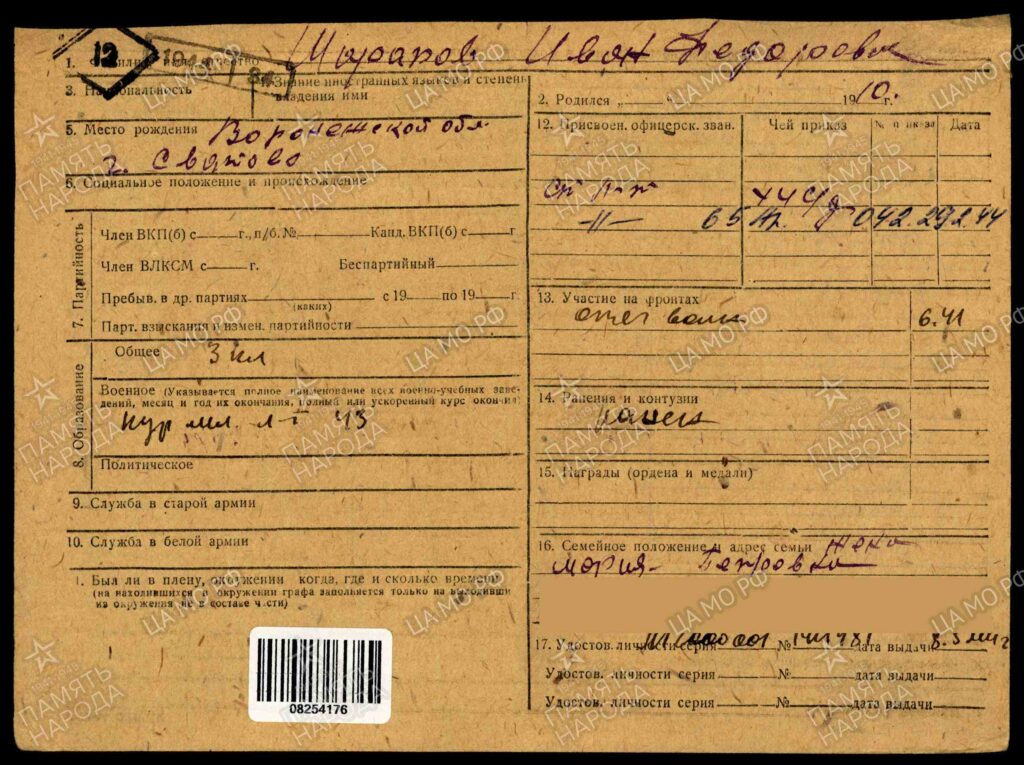 12
1. Фамилия, имя, отчество Иван Федорович
3. Национальность
4. Знание иностранных языков и степень владения ими
5. Место рождения Воронежской обл.
г. Сватово
6. Социальное положение и происхождение
7. Партийность
Член ВКП(б) с г., п/б. № Канд. ВКП(б) с г.
Член ВЛКСМ с г. Беспартийный
Пребыв. в др. партиях с 19 по 19 г.
(каких)
Парт. взыскания и измен. партийности
8. Образование
Общее 3 кл
Военное (Указывается полное наименование всех военно-учебных заведений, месяц и год их окончания, полный или ускоренный курс окончил)
кур мл. л-т 43
Политическое
9. Служба в старой армии
10. Служба в белой армии
1. Был ли в плену, окружении когда, где и сколько времени
(на находившихся в окружении графа заполняется только на выходивших
из окружения не в составе части)
08254176
2. Родился „ 1910 г.
12. Присвоен. офицерск. зван. Чей приказ № приказа Дата
44 сд
–//– 65 042 29.2.44
13. Участие на фронтах
отеч войн 6.41
14. Ранения и контузии
ранен
15. Награды (ордена и медали)
16. Семейное положение и адрес семьи жена
Мария Петровна
17. Удостов. личности серия № дата выдачи
Удостов. личности серия № дата выдачи
Удостов. личности серия № дата выдачи
ПАМЯТЬ НАРОДА
ЦА МО РФ